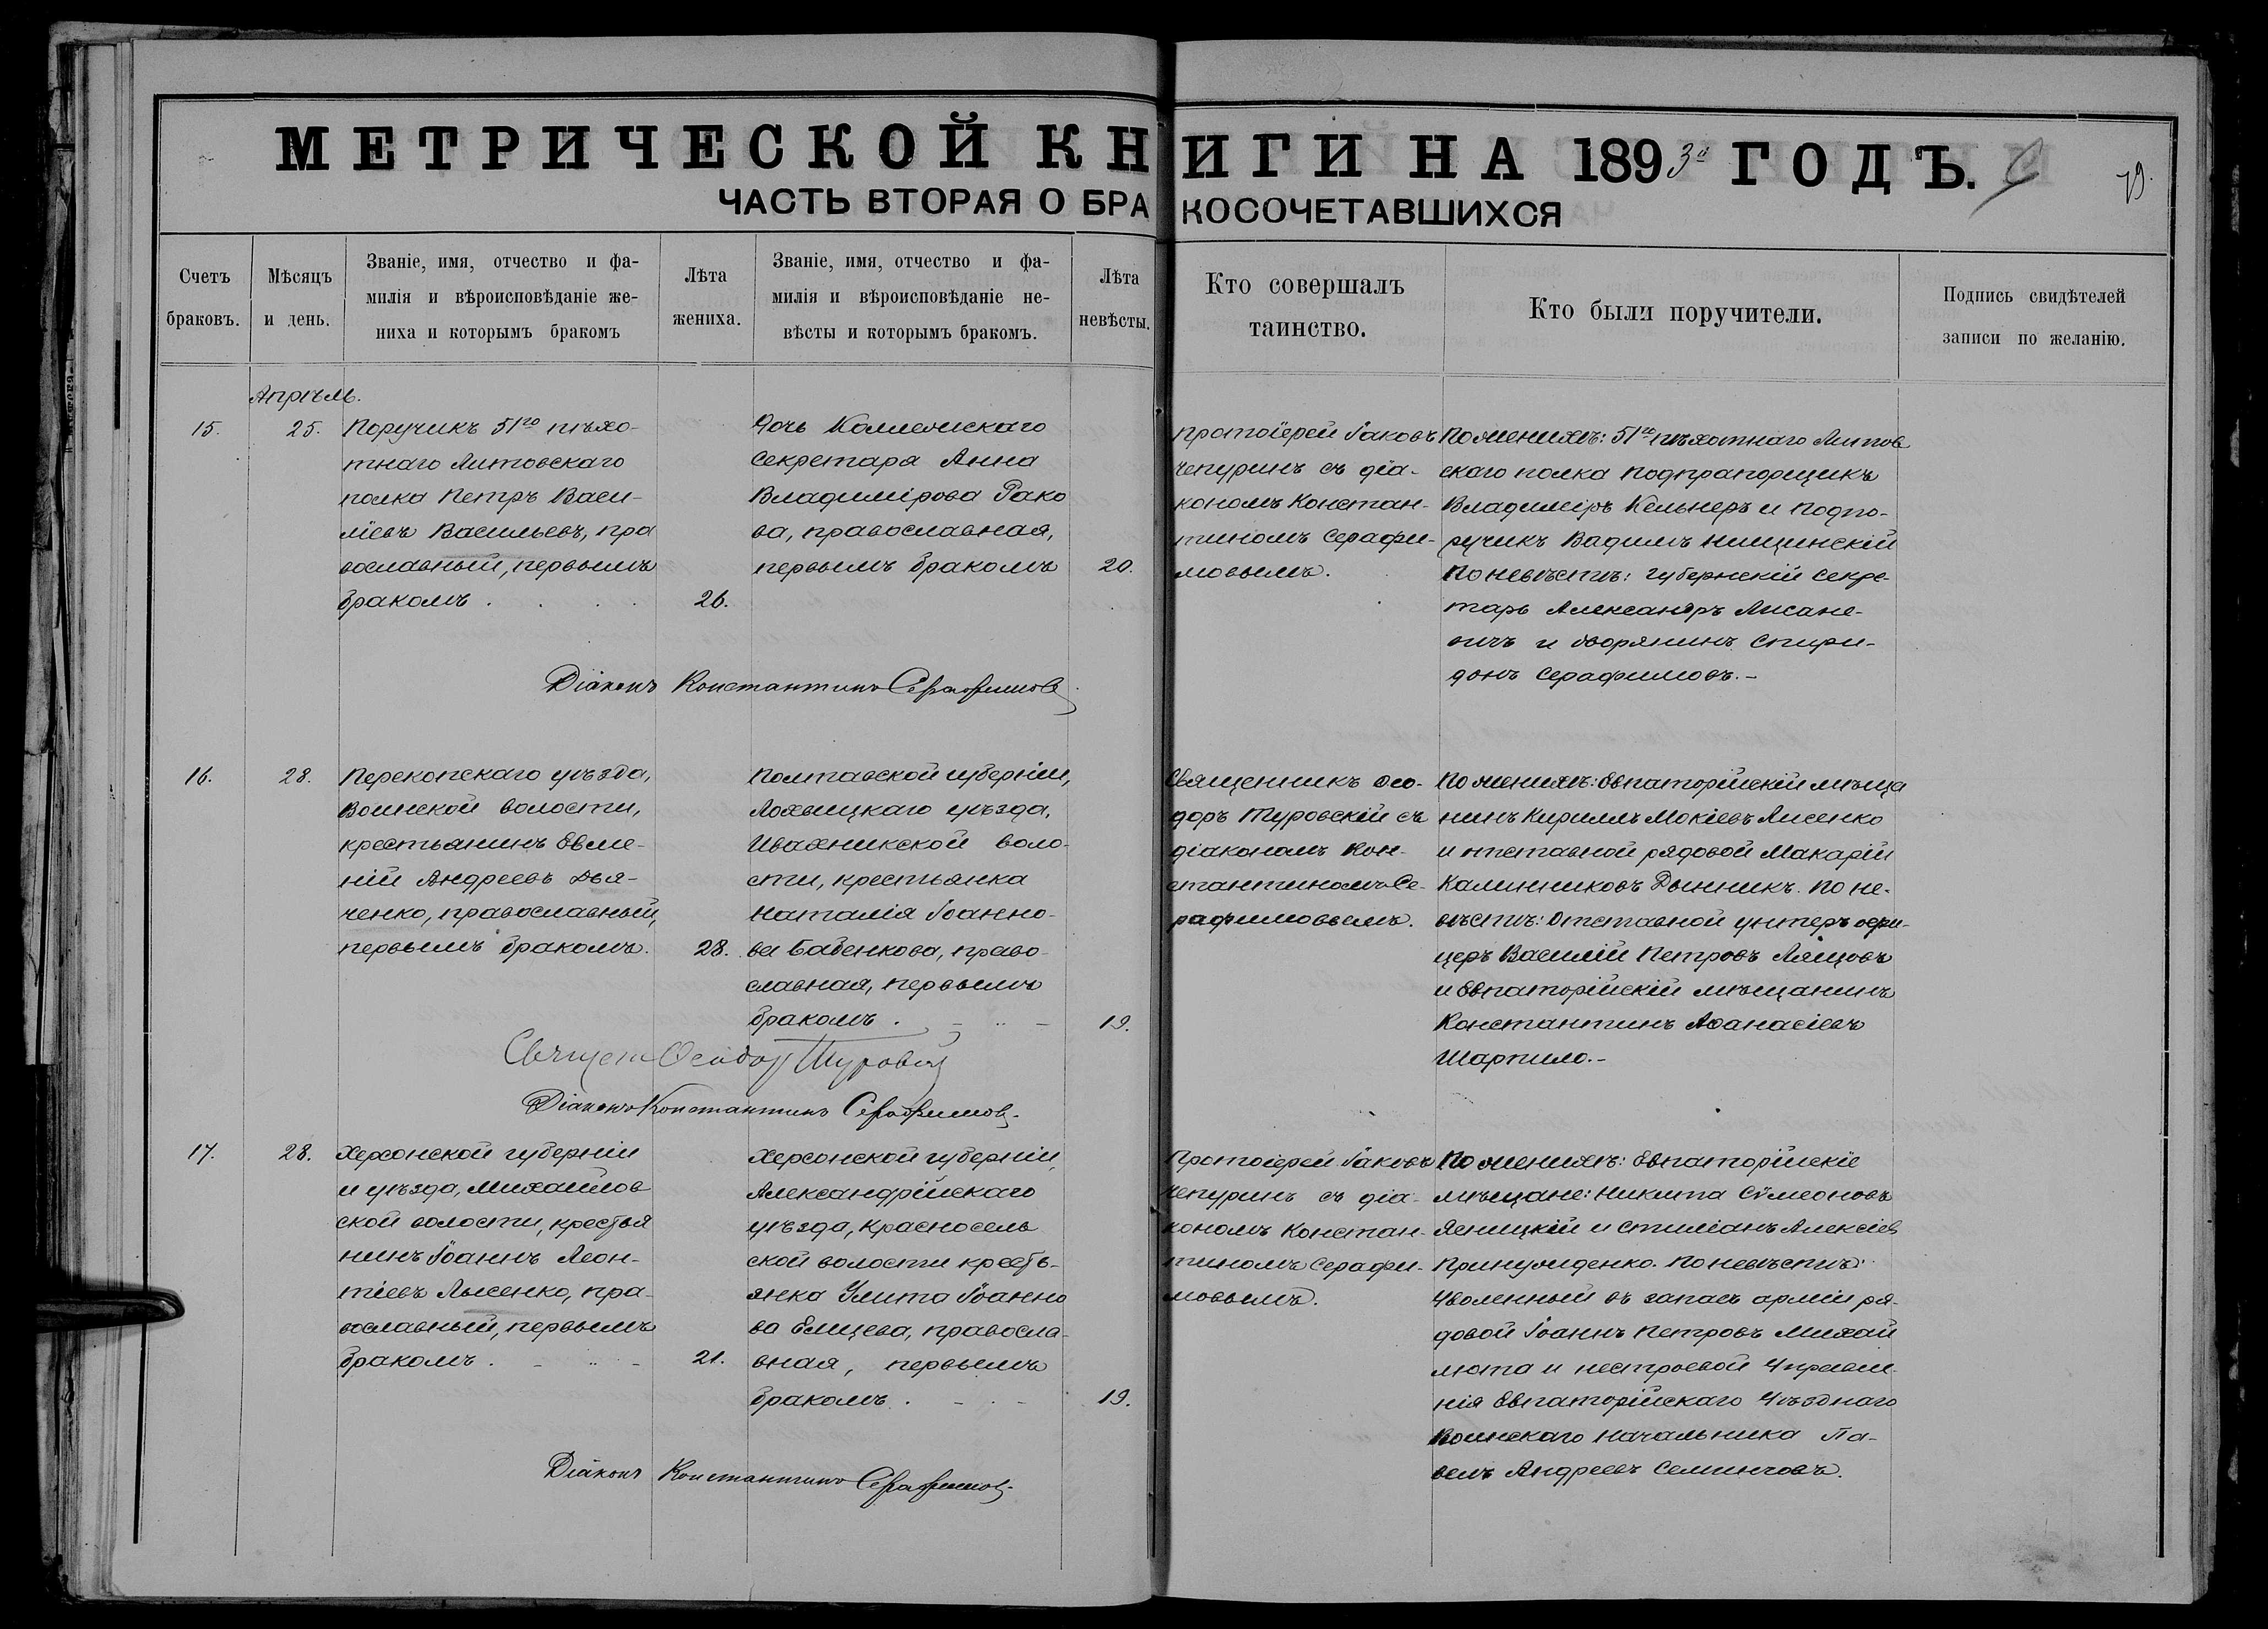 МЕТРИЧЕСКОЙ КНИГИ НА 1893й ГОДЪ.
79.
ЧАСТЬ ВТОРАЯ О БРАКОСОЧЕТАВШИХСЯ
Счетъ
браковъ.
Мѣсяцъ
и день.
Званіе, имя, отчество и фа-
милія и вѣроисповѣданіе же-
ниха и которымъ бракомъ
Лѣта
жениха.
Званіе, имя, отчество и фа-
милія и вѣроисповѣданіе не-
вѣсты и которымъ бракомъ.
Лѣта
невѣсты.
Кто совершалъ
таинство.
Кто были поручители.
Подпись свидѣтелей
записи по желанію.
Апрѣль.
15.
25.
Поручикъ 51го пѣхо-
тнаго Литовскаго
полка Петръ Васи-
ліевъ Васильевъ, пра
вославный, первымъ
бракомъ.
26.
Дочь Коллежскаго
Секретаря Анна
Владимірова Рако
ва, православная,
первымъ бракомъ
20.
Протоіерей Іаковъ
Чепуринъ съ діа-
кономъ Констан-
тиномъ Серафи-
мовымъ.
По женихѣ: 51го пѣхотнаго Литов
скаго полка Подпрапорщикъ
Владиміръ Кельнеръ и Подпо-
ручикъ Вадимъ Нищинскій
По невѣстѣ: Губернскій Секре-
тарь Александръ Лисане-
вичъ и дворянинъ Спири-
донъ Серафимовъ.-
Діаконъ Константинъ Серафимовъ
16.
28.
Перекопскаго уѣзда,
Воинской волости,
крестьянинъ Евме-
ній Андреевъ Дья-
ченко, православный,
первымъ бракомъ.
28.
Полтавской губерніи,
Лохвицкаго уѣзда,
Ивахникской воло-
сти, крестьянка
Наталія Іоанно-
ва Бабенкова, право-
славная, первымъ
бракомъ.
19.
Священникъ Ѳео-
доръ Туровскій съ
діакономъ Кон-
стантиномъ Се-
рафимовымъ.
По женихѣ: Евпаторійскій мѣща
нинъ Кириллъ Мокіевъ Лисенко
и отставной рядовой Макарій
Калинниковъ Дынникъ. По не-
вѣстѣ: Отставной унтеръ офи-
церъ Василій Петровъ Лящовъ
и Евпаторійскій мѣщанинъ
Константинъ Аѳанасіевъ
Шарпило.-
Священ Ѳеодор Туровскій
Діаконъ Константинъ Серафимовъ.
17.
28.
Херсонской губерніи
и уѣзда, Михайлов
ской волости, крестья
нинъ Іоаннъ Леон-
тіевъ Лысенко, пра-
вославный, первымъ
бракомъ.
21.
Херсонской губерніи,
Александрійскаго
уѣзда, Красносель
ской волости кресть-
янка Улита Іоанно
ва Елицева, правосла-
вная, первымъ
бракомъ.
19.
Протоіерей Іаковъ
Чепуринъ съ діа-
кономъ Констан-
тиномъ Серафи-
мовымъ.
По женихѣ: Евпаторійскіе
мѣщане: Никита Сѵмеоновъ
Ясницкій и Стиліанъ Алексіев
Принужденко. По невѣстѣ:
Уволенный въ запасъ арміи ря-
довой Іоаннъ Петровъ Михай
люта и нестроевой Управле-
нія Евпаторійскаго Уѣзднаго
Воинскаго Начальника Па-
велъ Андреевъ Семинговъ.
Діаконъ Константинъ Серафимовъ.